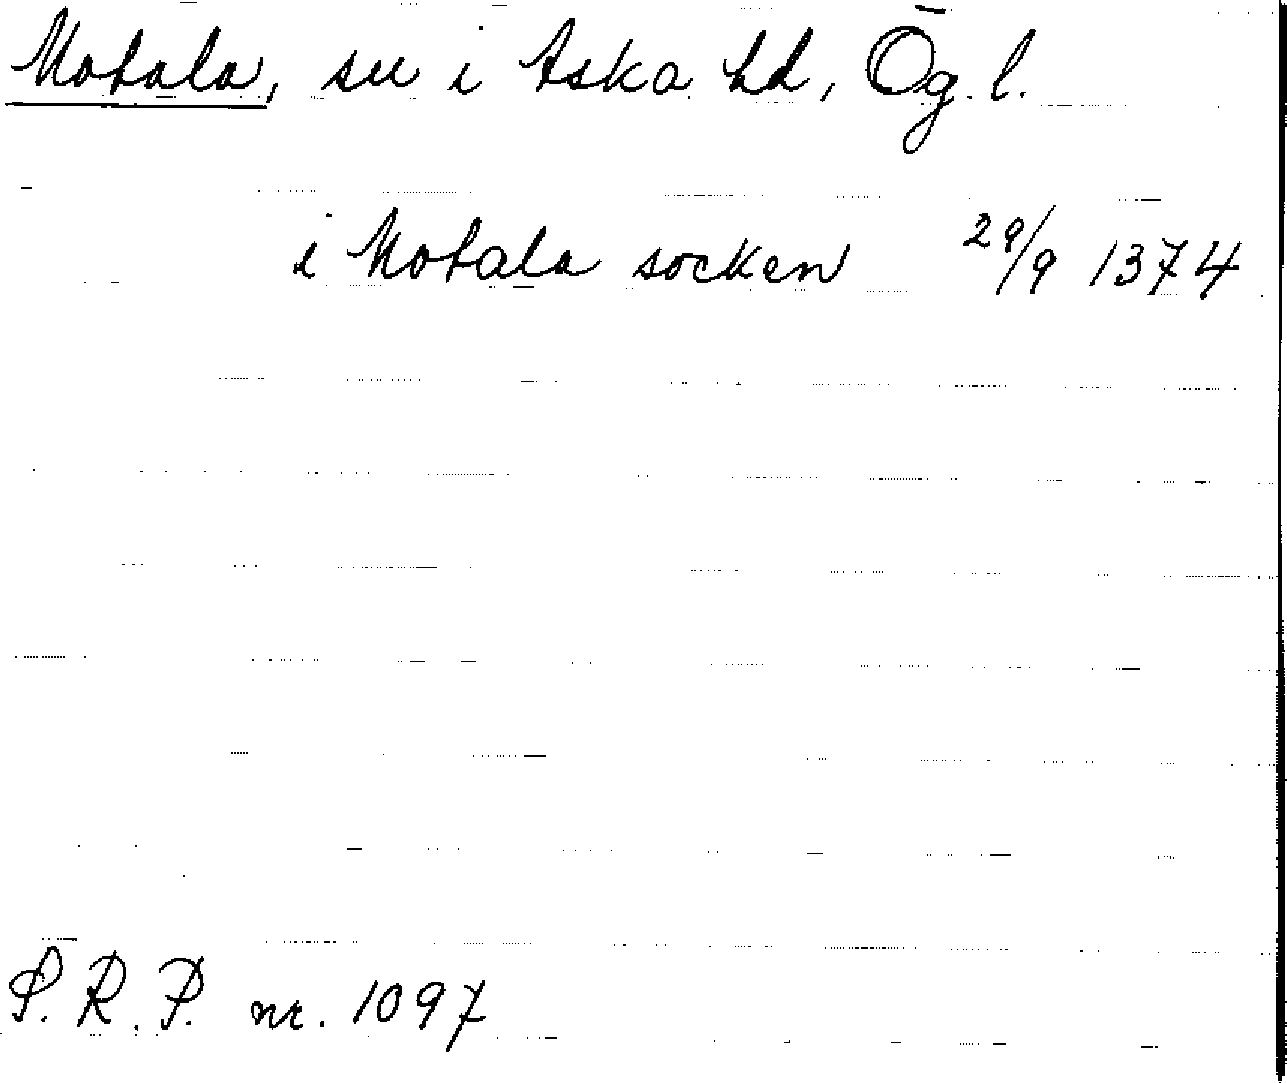 Motala, sn i Aska hd, Ög. l.
i Motala socken 29/9 1374
P. R. P. nr. 1097